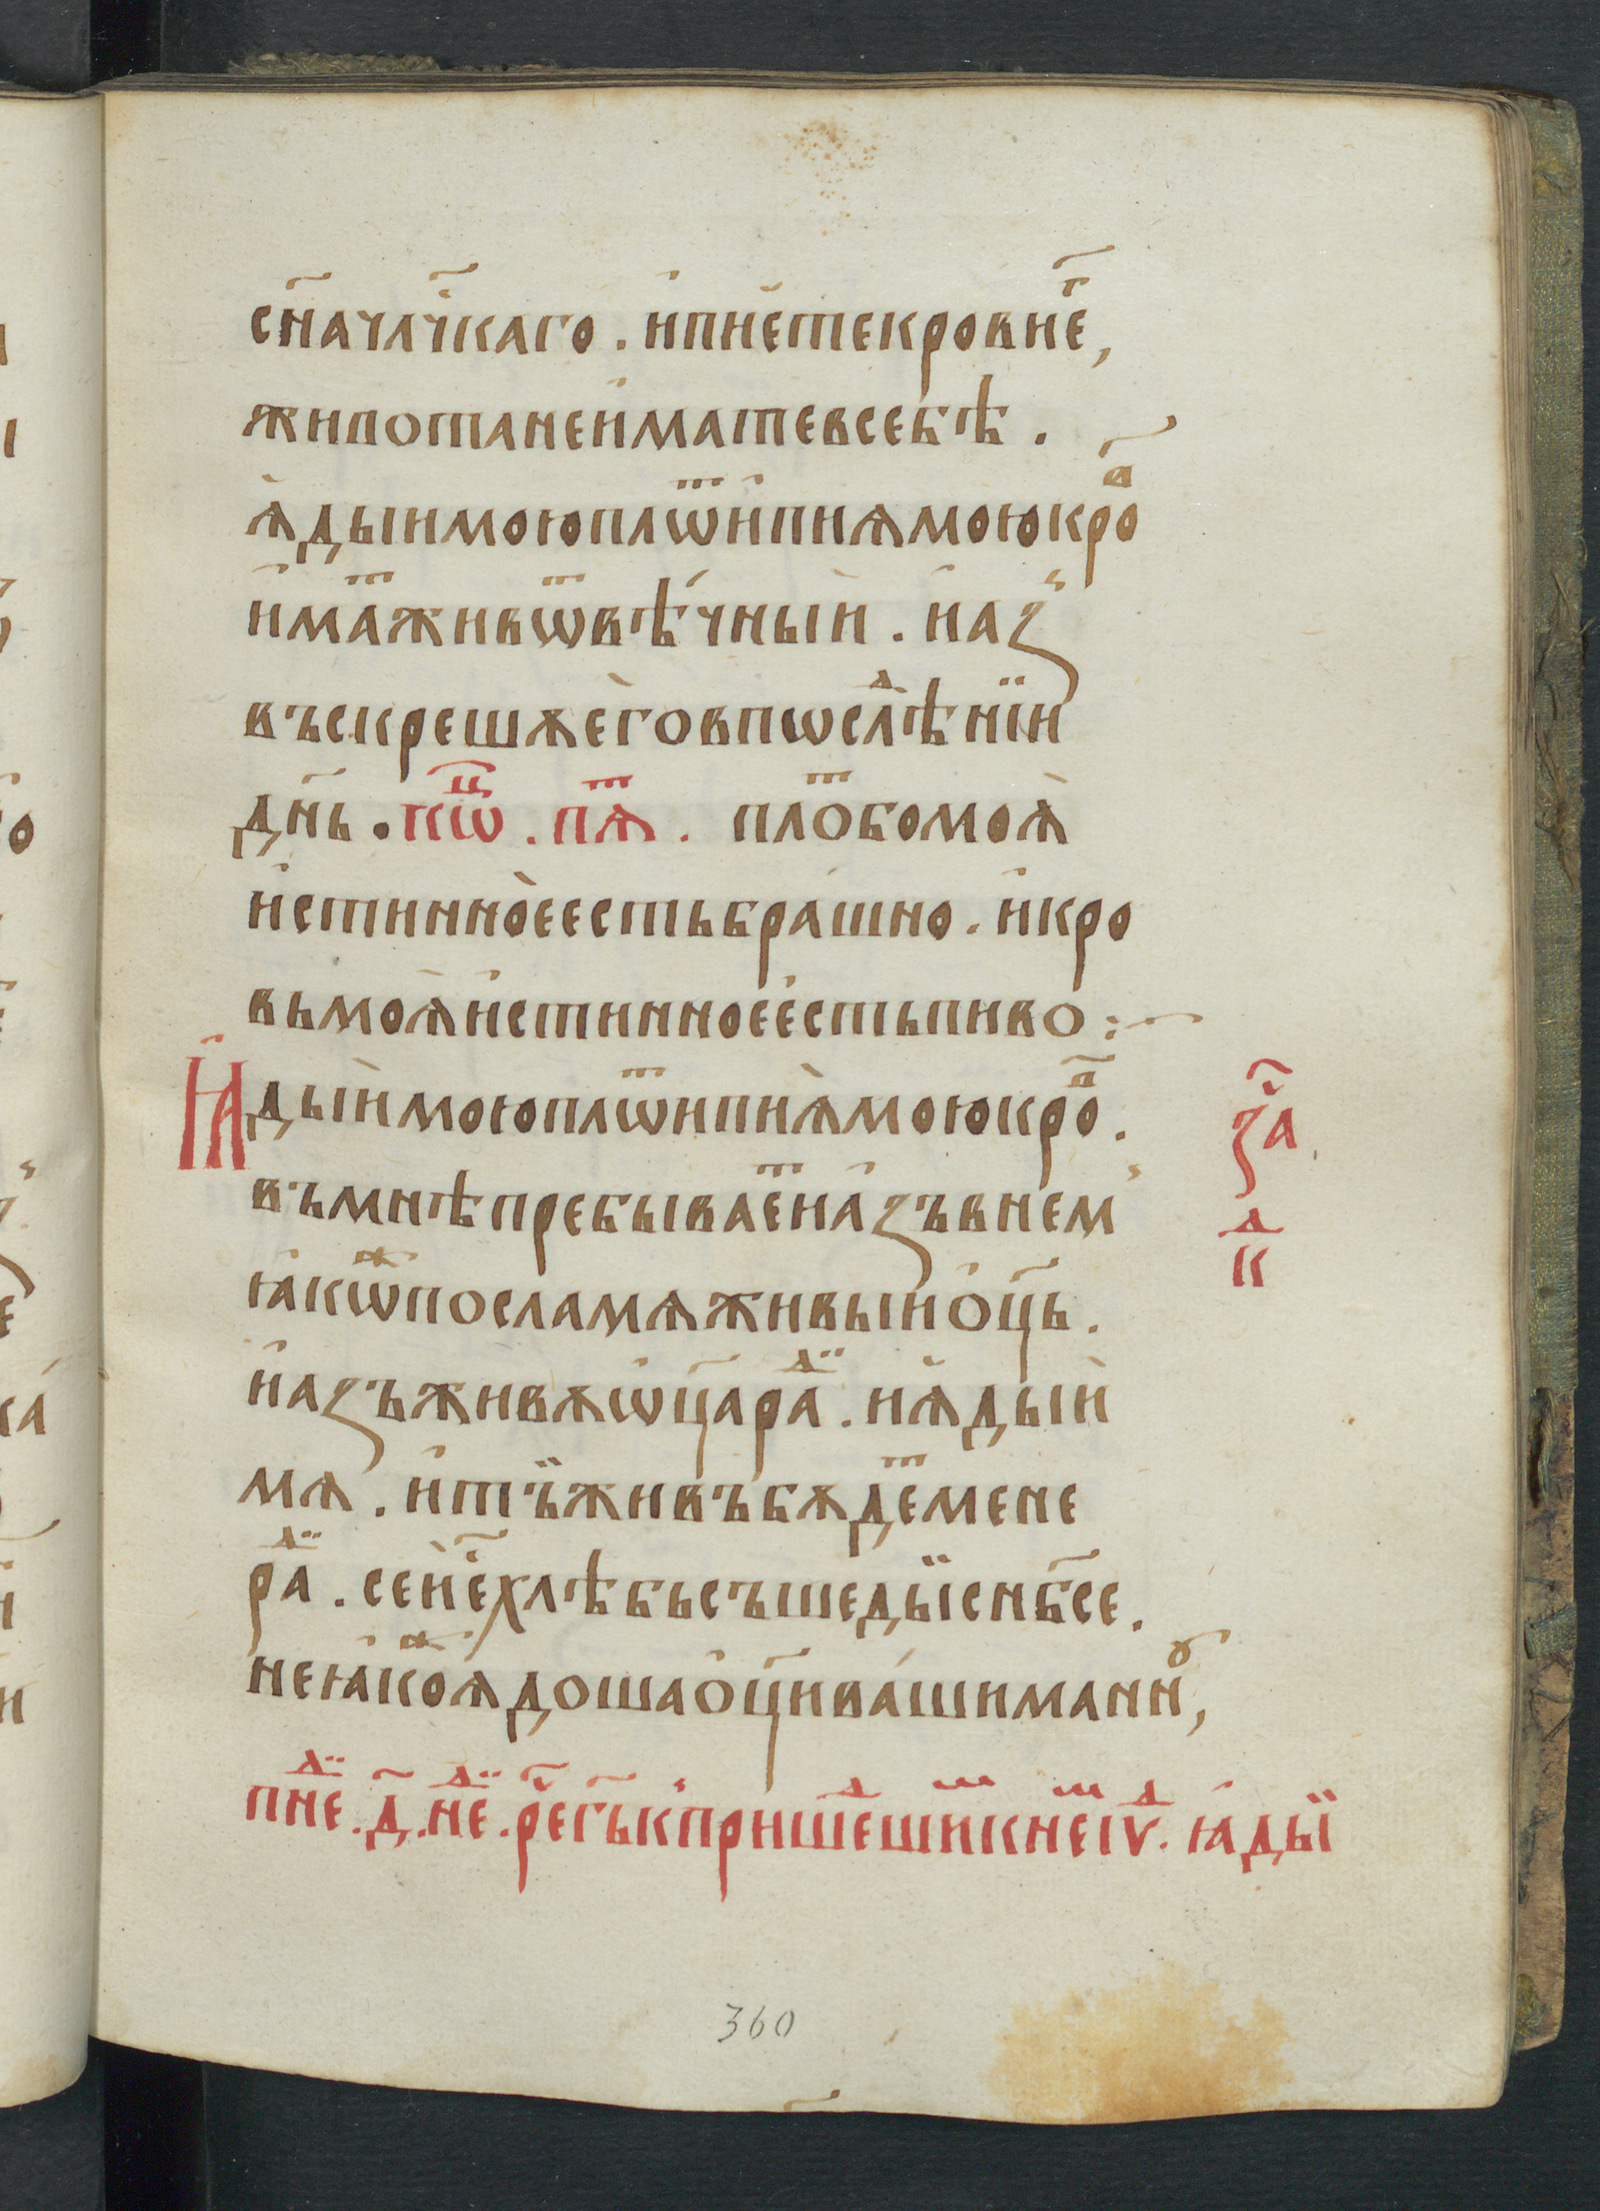 сн҃ачл҃чкаго . и҆пїе́текровиеⷢ҇,
животанеи҆матевсебѣ .
ꙗ҆дыимоюплѡⷮи҆пиѧмоюкроⷡ҇
и҆маⷮживѡⷮвѣ́чныи . иаꙁ̾
въскрешѫегѡвпѡслѣⷣнїи
дн҃ь . кѡⷰ҇ . пѧⷮ . плоⷮбомоѧ̀
и҆стинноеестьбра́шно . и҆кро
вьмоѧи҆стинноее҆стьпиво :~
Ꙗ҆дыи҆моюплѡⷮипиѧ̀моюкроⷡ҇ .
въмнѣпребываеⷮиа҆ꙁъвнем̾
ꙗкѡⷤпосламѧживыио҆ц҃ь .
и҆аꙁъживѫѡ҆ц҃араⷣ . иꙗ҆дыи
мѧ . и҆тъ̈живъбѫдеⷮмене
раⷣ . сеи̇еⷭ҇хлѣбьсъшедыїснб҃се .
неꙗ҆коⷤꙗдошао҆ц҃ива́шиманнꙋ,
пнеⷣ . д҃ . неⷣ . реⷱ҇гь҃к̾пришеⷣшиⷨкнеⷨіѵⷣ . ꙗ҆дыї
ꙁаⷱ҇
кⷣ
360